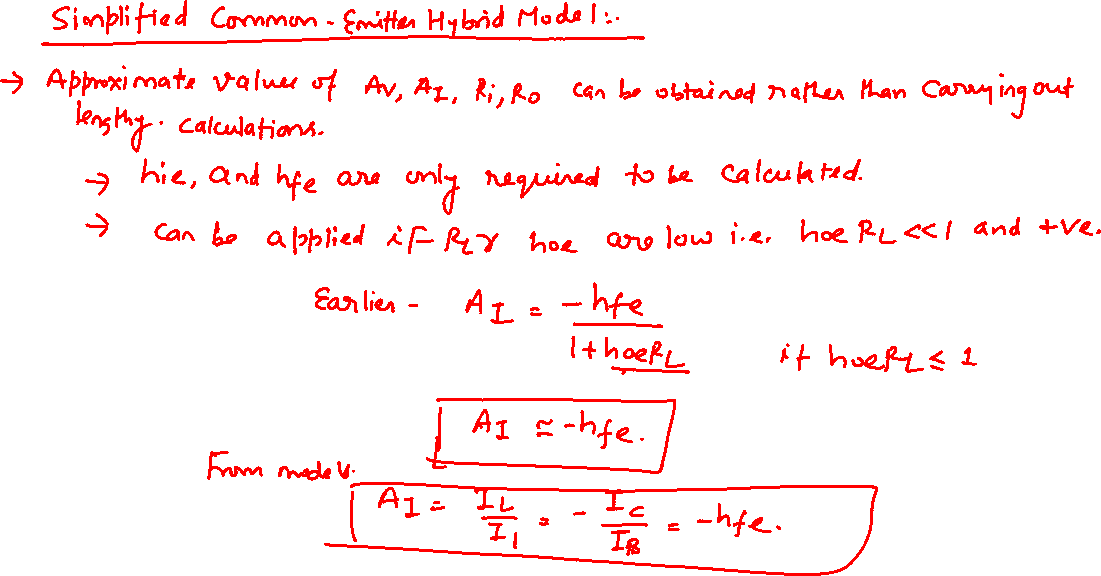 Simplified Common-Emitter Hybrid Model:.
→ Approximate values of Av, A_I, Ri, Ro can be obtained rather than Carrying out
lengthy. calculations.
→ hie, and hfe are only required to be calculated.
→ can be applied if R_L γ hoe are low i.e. hoe R_L << 1 and +ve.
Earlier - A_I = -hfe / (1 + hoeR_L) if hoeR_L ≤ 1
A_I ≃ -hfe.
From model.
A_I = I_L / I_1 = - I_C / I_B = -hfe.